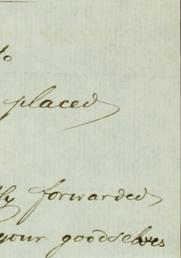 to
placed
ly forwarded
your goodselves